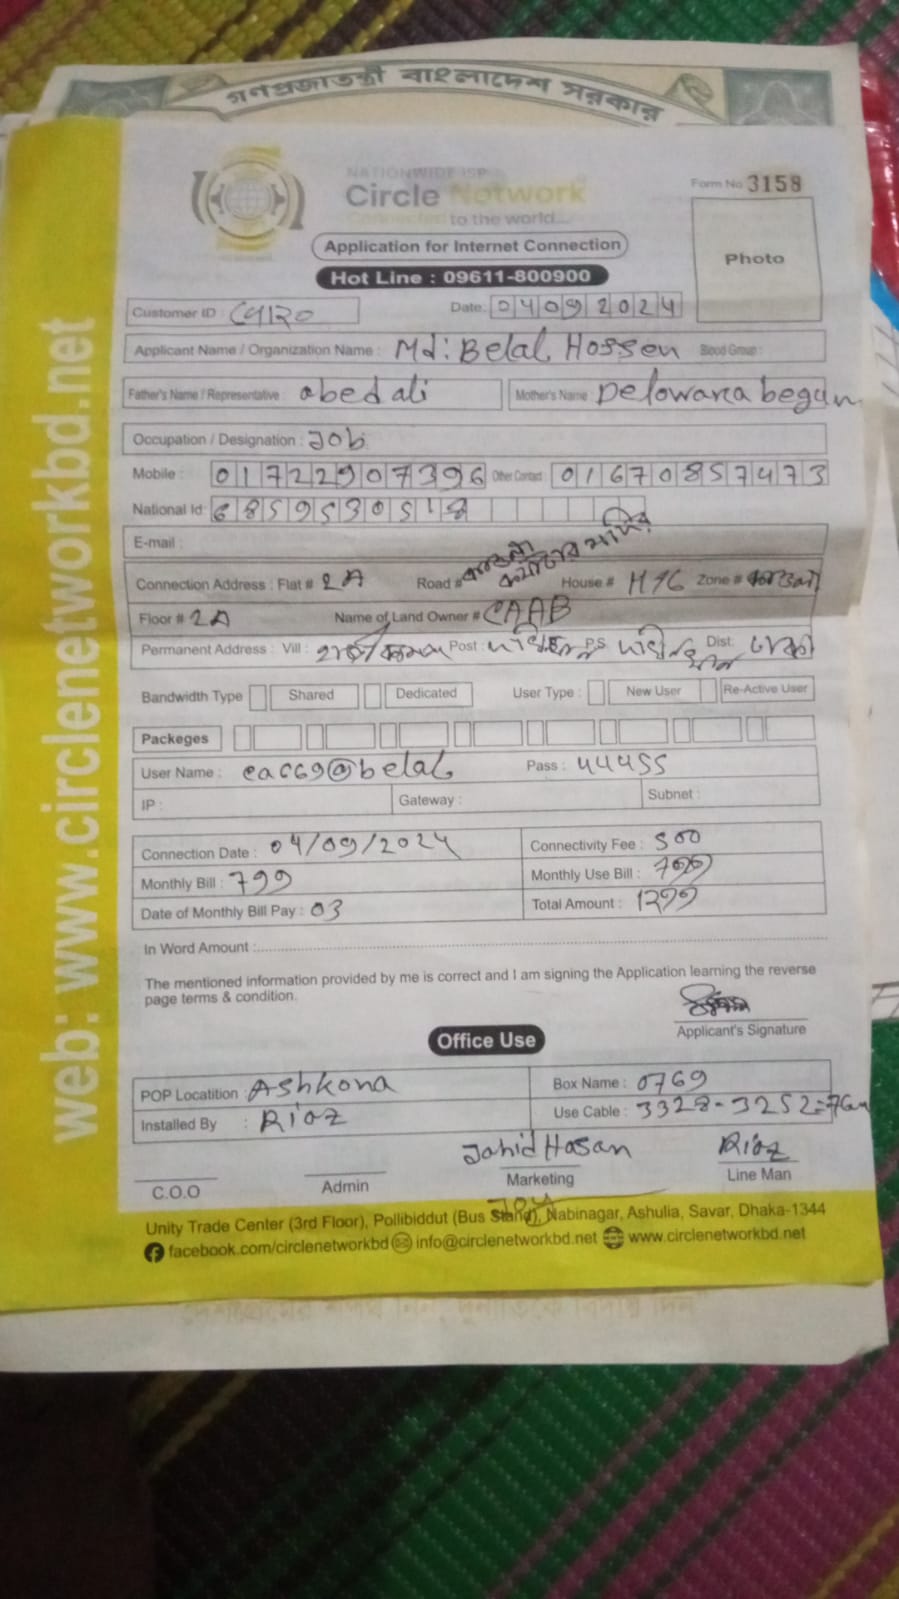 গণপ্রজাতন্ত্রী বাংলাদেশ সরকার
NATIONWIDE ISP
Circle Network
Connected to the world...
Form No 3158
Photo
Application for Internet Connection
Hot Line : 09611-800900
Customer ID : C4120 Date: 04092024
Applicant Name / Organization Name : Md: Belal Hossen Blood Group :
Father's Name / Representative : abed ali Mother's Name : Delowara begum
Occupation / Designation : Job
Mobile : 01722907396 Other Contact : 01670857473
National Id:
E-mail :
Connection Address : Flat # 2A Road # House # H16 Zone #
Floor # 2A Name of Land Owner # CAAB
Permanent Address : Vill : Post : P.S Dist. ঢাকা
Bandwidth Type Shared Dedicated User Type : New User Re-Active User
Packeges
User Name : eac69@belal Pass : 44455
IP : Gateway : Subnet :
Connection Date : 04/09/2024 Connectivity Fee : 500
Monthly Bill : 799 Monthly Use Bill : 799
Date of Monthly Bill Pay : 03 Total Amount : 1299
In Word Amount :
The mentioned information provided by me is correct and I am signing the Application learning the reverse
page terms & condition.
Applicant's Signature
Office Use
POP Locatition : Ashkona Box Name : 0769
Installed By : Riaz Use Cable : 3328-3252=76m
Jahid Hasan Riaz
C.O.O Admin Marketing Line Man
Unity Trade Center (3rd Floor), Pollibiddut (Bus Stand), Nabinagar, Ashulia, Savar, Dhaka-1344
facebook.com/circlenetworkbd info@circlenetworkbd.net www.circlenetworkbd.net
web: www.circlenetworkbd.net